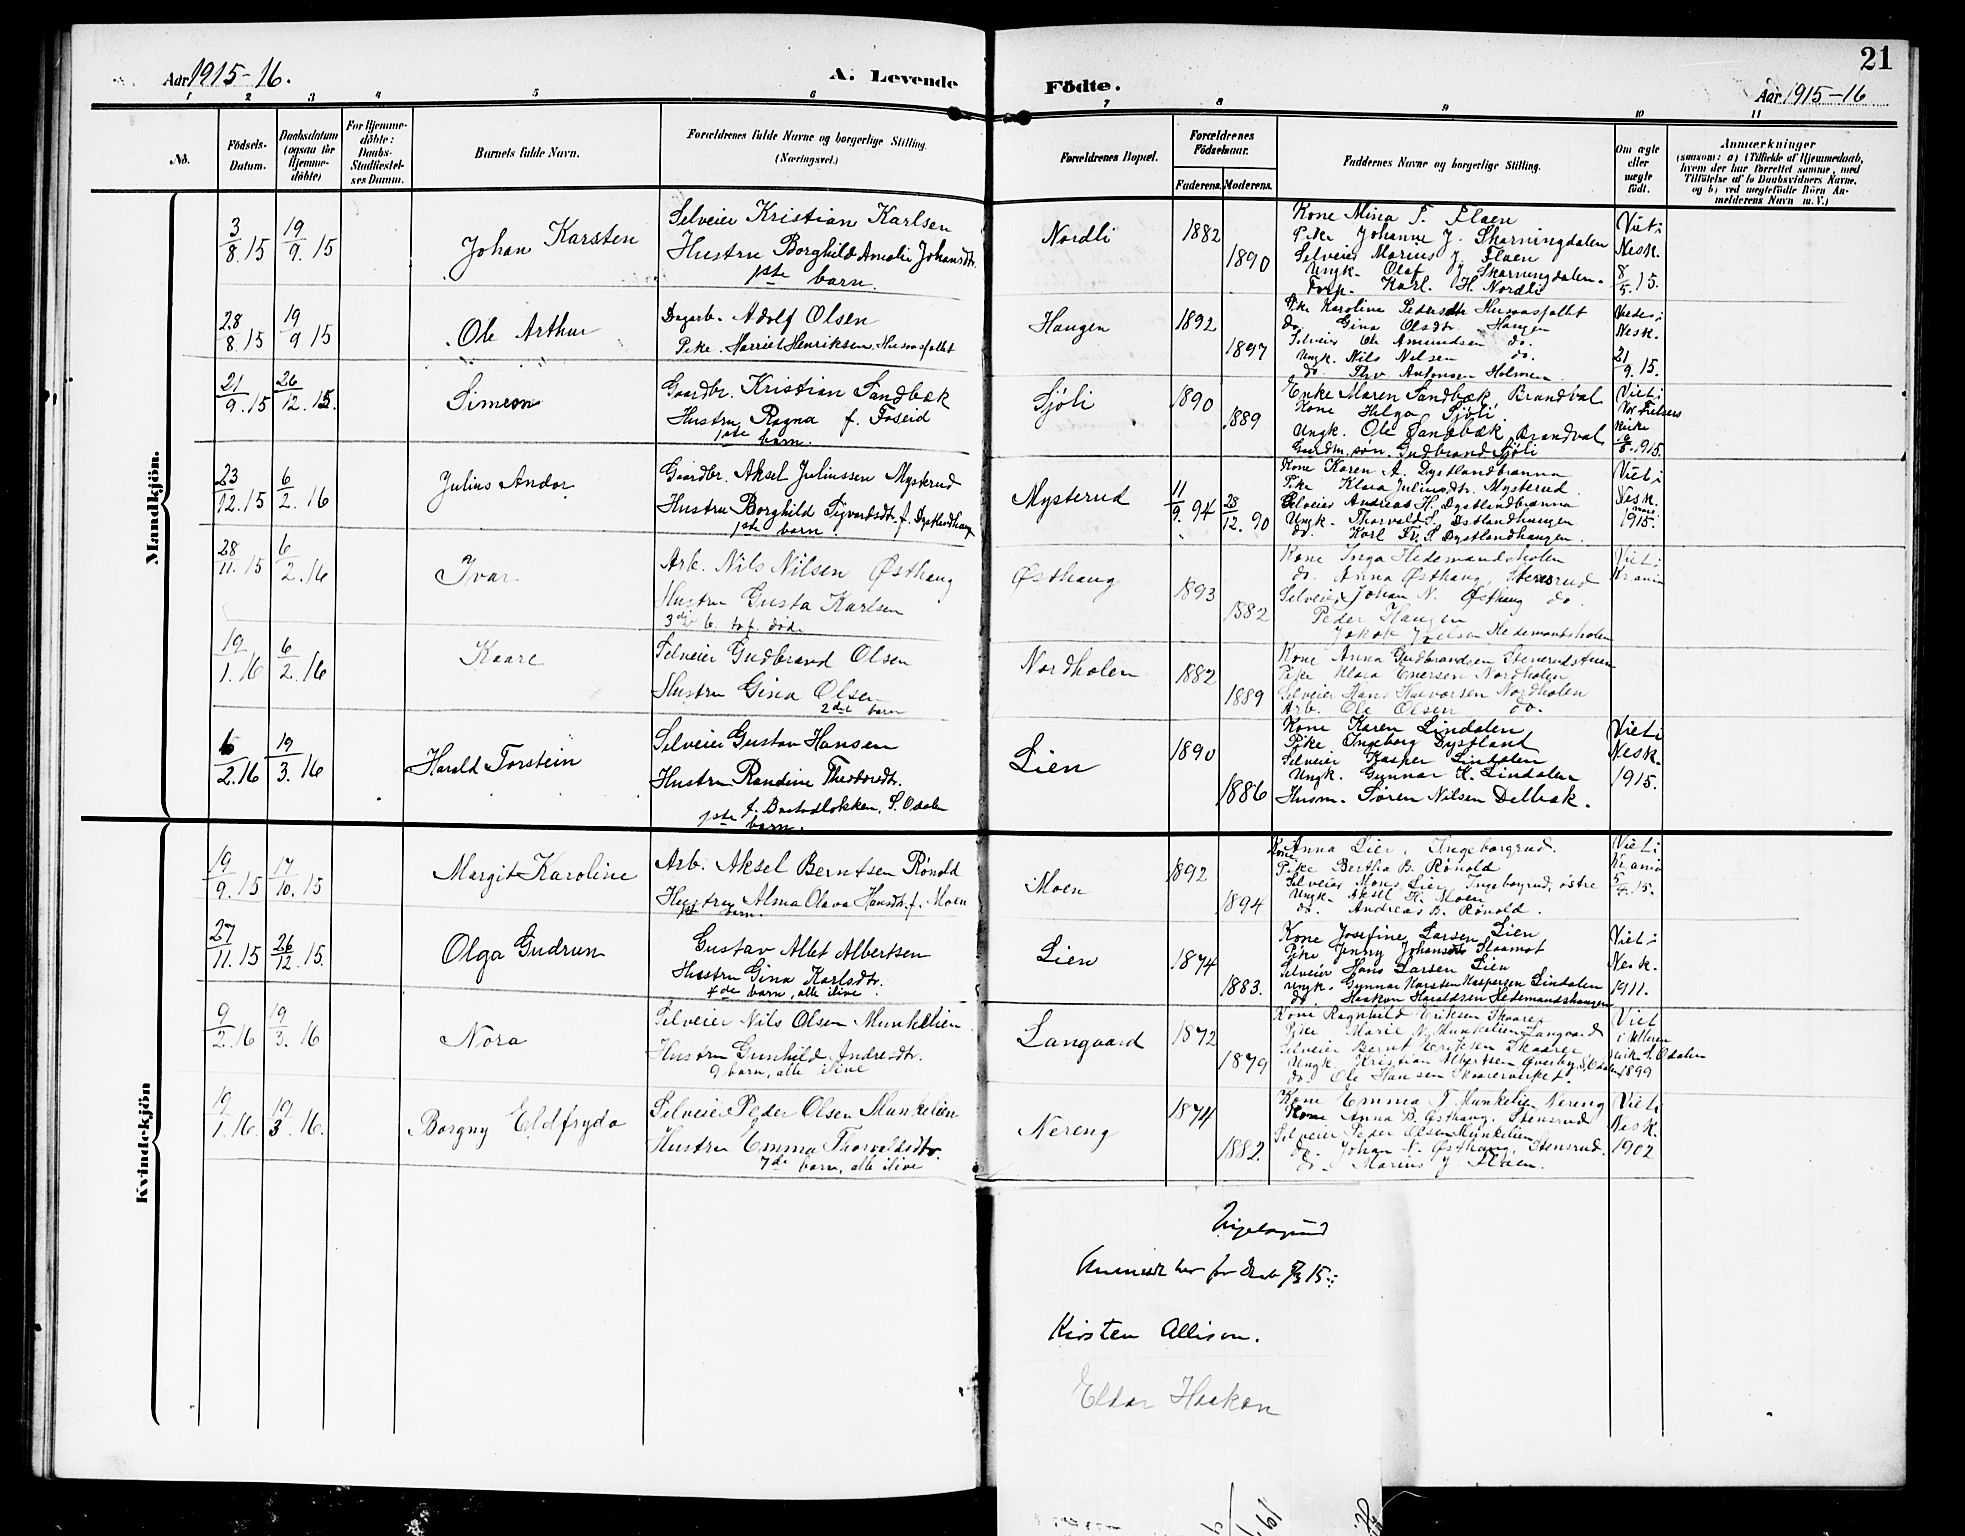 21
Aar 1915-16.
A. Levende
Födte.
Aar 1915-16
1 2 3 4 5 6 7 8 9 10 11
No.
Födsels-
Datum.
Daabsdatum
(ogsaa for
Hjemme-
döbte)
For Hjemme-
döbte:
Daabs-
Stadfæstel-
ses Datum.
Barnets fulde Navn.
Forældrenes fulde Navne og borgerlige Stilling.
(Næringsvei.)
Forældrenes Bopæl.
Forældrenes
Födselsaar.
Faderens. Moderens.
Faddernes Navne og borgerlige Stilling.
Om ægte
eller
uægte
födt.
Anmærkninger
(saasom: a) i Tilfælde af Hjemmedaab,
hvem der har forrettet samme, med
Tilföielse af to Daabsvidners Navne,
og b) ved uægtefödte Börn An-
melderens Navn m. V.)
Mandkjön.
3/8.15 19/9.15
Johan Karsten
Selveier Kristian Karlsen
Hustru Borghild Amalie Johansdtr.
1ste barn.
Nordli
1882
1890
Kone Mina F. Flaen
Pike Johanne J. Skarningdalen
Selveier Marius J. Flaen
Ungk. Olaf J. Skarningdalen.
Forp. Karl. H. Nordli
Viet i
Nesk.
8/5.15.
28/8.15 19/9 15
Ole Arthur
Dagarb. Adolf Olsen
Pike. Harriet Henriksen, Husmosfallet
Haugen
1892
1897
Pike Karoline Pedersdtr Husmosfallet
do Gina Olsdtr. Haugen
Selveier Ole Amundsen do.
Ungk. Nils Nilsen do.
do Thv. Antonsen Holmen
Nesk.
21/9.15.
21/9.15 26/12.15.
Simeon
Gaardbr. Kristian Sandbæk
Hustru Ragna f. Foseid
1ste barn.
Sjöli
1890
1889
Enke Maren Sandbæk Brandval
Kone Helga Sjöli
Ungk. Ole Sandbæk, Brandval
Gaardm. søn. Gudbrand Sjöli
Viet i
Vor Frelsers
Kirke
1915.
23/12.15 6/2.16
Julius Andor
Gaardbr. Aksel Juliussen Mysterud
Hustru Borghild Sigvardsdtr. f. Dystlandhaug
1ste barn.
Mysterud
11/9.94 28/12.90
Kone Karen A. Dystlandbranna
Pike Klara Juliusdtr. Mysterud.
Selveier Andreas H. Dystlandbranna
Ungk. Thorvald S. Dstlandhaugen
do. Karl Fr. S. Dystlandhaugen.
Viet i
Nesk.
1915.
28/11.15 6/2.16
Ivar
Arb. Nils Nilsen Østhaug
Hustru Gusta Karlsen
3die b. 1 o.f. død.
Østhaug
1893
1882
Kone Inga Hedemandsholen
do. Anna Østhaug, Stensrud
Selveier Johan N. Østhaug do.
Peder Haugen
Jakob Joelsen Hedemandsholen
Viet i
Krania
19/1.16 6/2.16
Kaare
Selveier Gudbrand Olsen
Hustru Gina Olsen
2det barn
Nordholen
1882
1889
Kone Anna Gudbrandsen Stenerudstuen
Pike Klara Enersen Nordholen
Selveier Hans Halvorsen Nordholen
Arb. Ole Olsen do.
6/2.16 19/3.16
Harald Torstein
Selveier Gustav Hansen
Hustru Randine Theodorsdtr.
f. Bastadlokken, S. Odalen
1ste barn.
Lien
1890
1886
Kone Karen Lindalen
Pike Ingeborg Dystland
Selveier Kasper Lindalen
Ungk. Gunnar K. Lindalen
Husm. Søren Nilsen Delbæk.
Viet i
Nesk.
1915.
Kvindekjön
19/9.15 17/10.15
Margit Karoline
Arb. Aksel Berntsen Rønold
Hustru Alma Olava Hansdtr. f. Moen
1ste barn.
Moen
1892
1894
Kone Anna Lier, Ingeborgrud.
Pike Bertha B. Rønold
Selveier Mons Lier Ingeborgrud, østre
Ungk. Aksel H. Moen
do. Andreas B. Rønold.
Viet i
Krania
15.
27/11.15 26/12.15.
Olga Gudrun
Gustav Allet Albertsen
Hustru Gina Karlsdtr.
4de barn, alle ilive.
Lien
1874
1883.
Kone Josefine Larsen Lien
Pike Jenny Johansdtr Slaamot
Selveier Hans Larsen Lien
Ungk. Gunnar Karsten Kaspersen Lindalen
do. Haakon Haraldsen Hedemandshaugen
Viet i
Nesk.
1911.
9/2.16 19/3.16
Nora
Selveier Nils Olsen Munkelien
Hustru Gunhild Andresdtr.
9 barn, alle ilive
Langaard
1872
1879
Kone Ragnhild Eriksen Skaarer
Pike Marie N. Munkelien Langaard
Selveier Bernt Eriksen Skaarer
Ungk Kristian Albertsen Øverby S. Odalen
do. Ole Hansen Skaarervirket.
Viet
S. Odalen
1899
19/1.16. 19/3 16.
Borgny Eldfryda
Selveier Peder Olsen Munkelien
Hustru Emma Thorvaldsdtr.
7de barn, alle ilive
Nereng
1874
1882.
Kone Emma T. Munkelien Nereng
Kone Anna B. Østhaug, Stensrud
Selveier Peder Olsen Munkelien
do. Johan N. Østhaug, Stensrud.
do. Marius J. Flaen.
Viet i
Nesk.
1902
Kirsten Allison.
Eldar Haakon